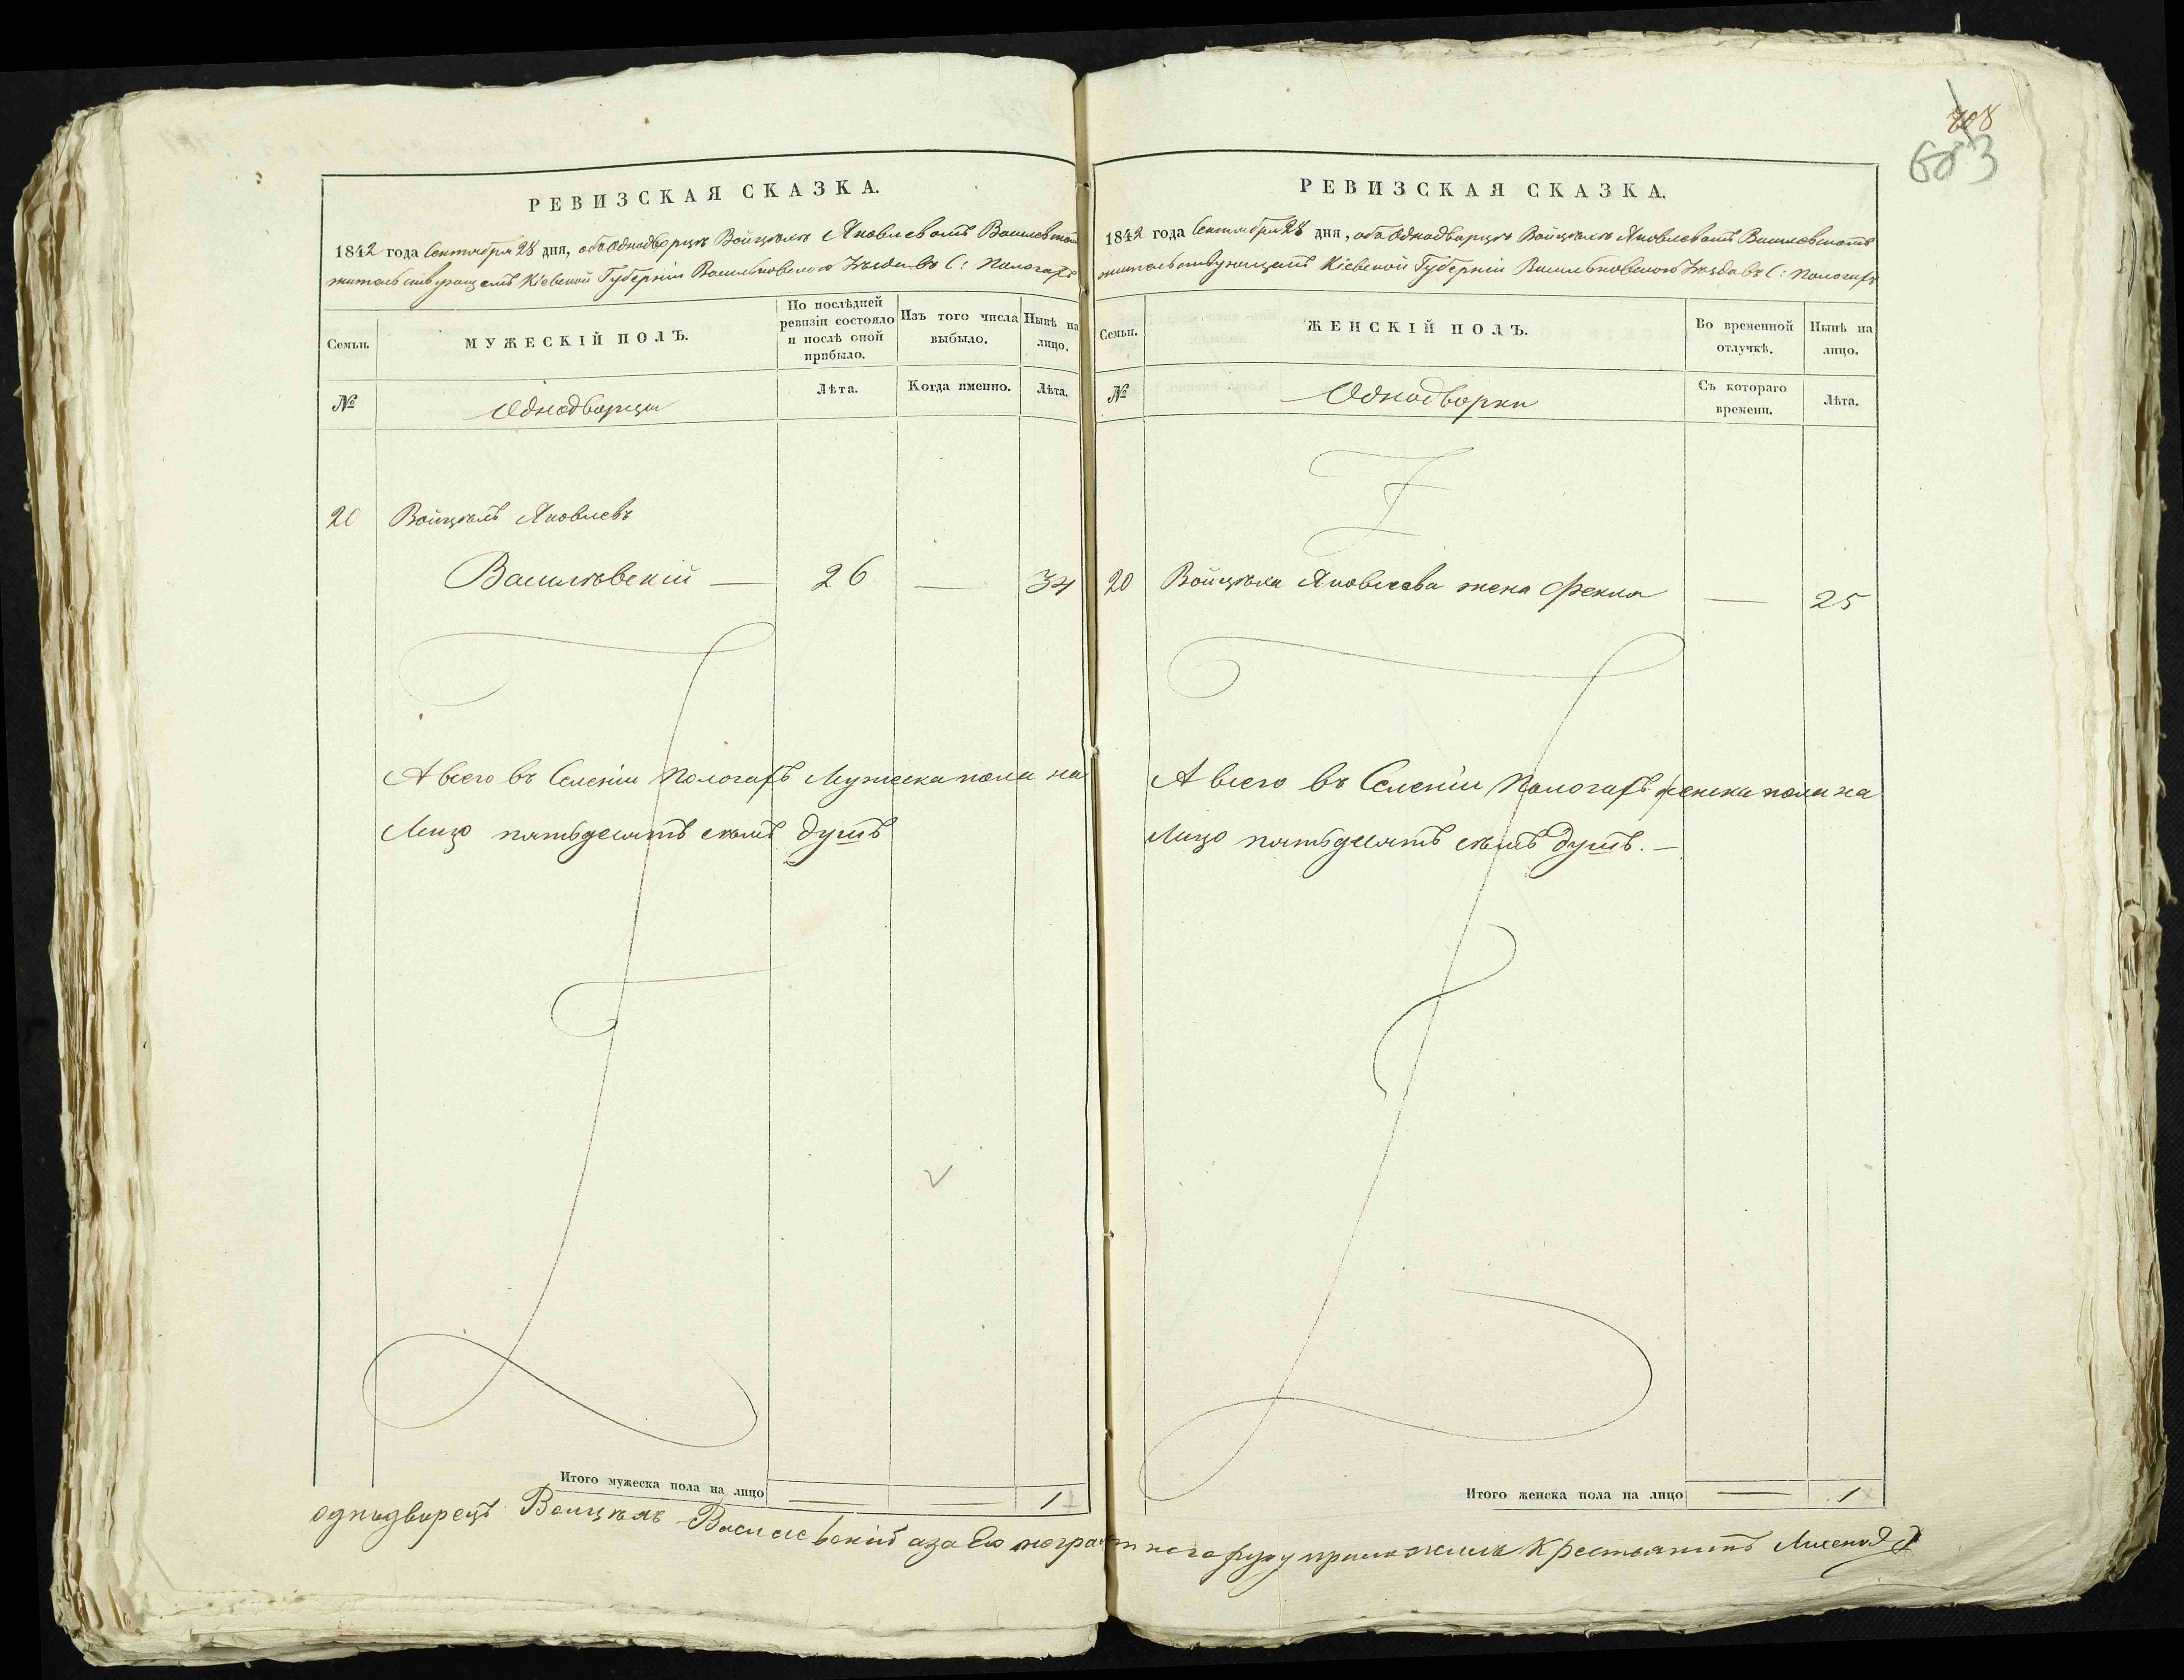 708
683
РЕВИЗСКАЯ СКАЗКА.
1842 года Сентября 28 дня, объ Однодворцѣ Войцѣхѣ Яковлевомъ
жительствующемъ Кіевской Губерніи Васильковского Уѣзда въ С:
Семьи.
МУЖЕСКІЙ ПОЛЪ.
По послѣдней ревизіи состояло и послѣ оной прибыло.
Изъ того числа выбыло.
Нынѣ на лицо.
№
Однодворцы
Лѣта.
Когда именно.
Лѣта.
20 Яковлевъ
Василевскій — 26 — 34
А всего въ Селеніи Мужеска пола на
Лицо пятьдесятъ душъ
Итого мужеска пола на лицо — — 1
РЕВИЗСКАЯ СКАЗКА.
1842 года Сентября 28 дня, объ Однодворцѣ Яковлевомъ
жительствующемъ Кіевской Губерніи Васильковского Уѣзда въ С:
Семьи.
ЖЕНСКІЙ ПОЛЪ.
Во временной отлучкѣ.
Нынѣ на лицо.
№
Однодворки
Съ котораго времени.
Лѣта.
20 Яковлева жена Фекла — 25
А всего въ Селеніи женска пола на
Лицо пятьдесятъ душъ. —
Итого женска пола на лицо — 1
однодворецъ Василевскій а за Его неграмотнаго руку приложилъ Крестьянинъ